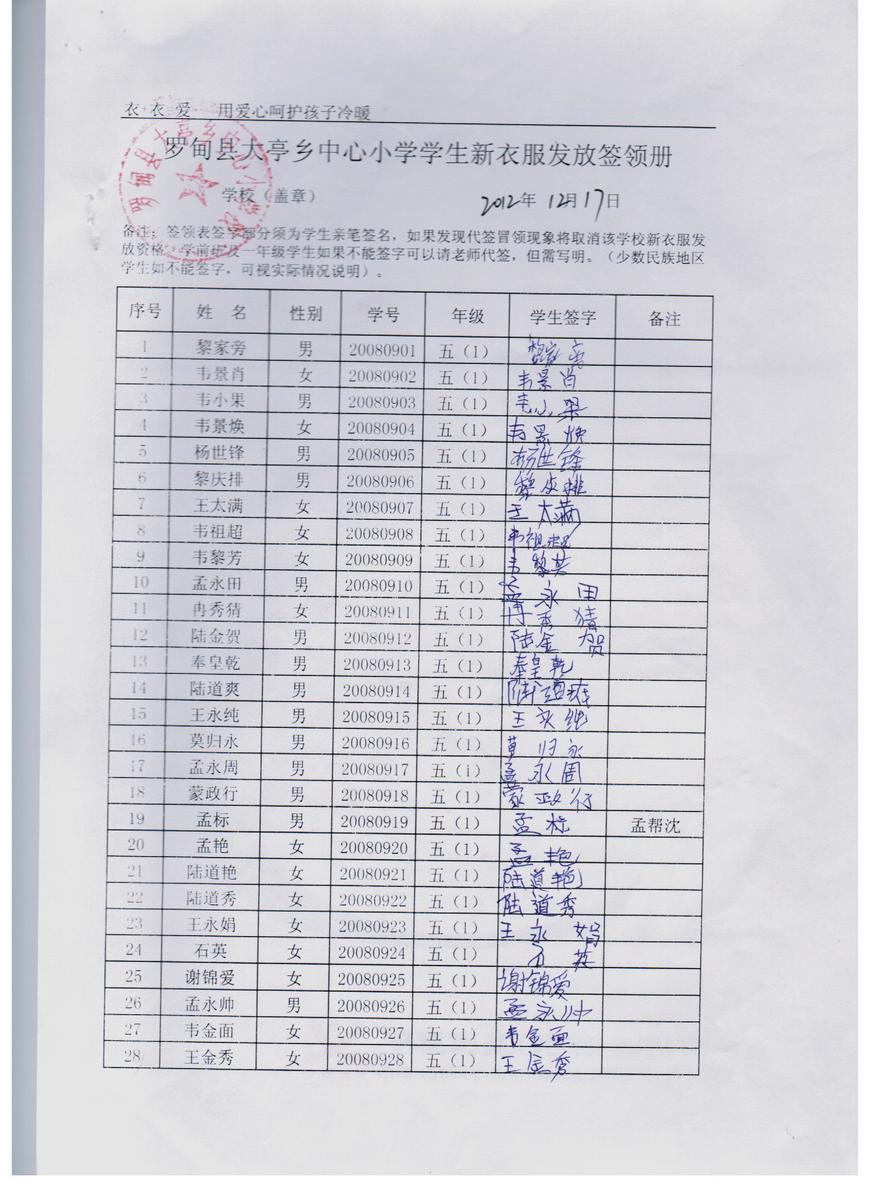 衣+衣=爱 用爱心呵护孩子冷暖
罗甸县大亭乡中心小学学生新衣服发放签领册
学校（盖章） 2012年 12月17日
备注：签领表签字部分须为学生亲笔签名，如果发现代签冒领现象将取消该学校新衣服发
放资格。学前班及一年级学生如果不能签字可以请老师代签，但需写明。（少数民族地区
学生如不能签字，可视实际情况说明）。
序号 姓 名 性别 学号 年级 学生签字 备注
1 黎家旁 男 20080901 五（1） 黎家旁
2 韦景肖 女 20080902 五（1） 韦景肖
3 韦小果 男 20080903 五（1） 韦小果
4 韦景焕 女 20080904 五（1） 韦景焕
5 杨世锋 男 20080905 五（1） 杨世锋
6 黎庆排 男 20080906 五（1） 黎庆排
7 王太满 女 20080907 五（1） 王太满
8 韦祖超 女 20080908 五（1） 韦祖超
9 韦黎芳 女 20080909 五（1） 韦黎芳
10 孟永田 男 20080910 五（1） 孟永田
11 冉秀猜 女 20080911 五（1） 冉秀猜
12 陆金贺 男 20080912 五（1） 陆金贺
13 奉皇乾 男 20080913 五（1） 奉皇乾
14 陆道爽 男 20080914 五（1） 陆道
15 王永纯 男 20080915 五（1） 王永纯
16 莫归永 男 20080916 五（1） 莫归永
17 孟永周 男 20080917 五（1） 孟永周
18 蒙政行 男 20080918 五（1） 蒙政行
19 孟标 男 20080919 五（1） 孟标 孟帮沈
20 孟艳 女 20080920 五（1） 孟艳
21 陆道艳 女 20080921 五（1） 陆道艳
22 陆道秀 女 20080922 五（1） 陆道秀
23 王永娟 女 20080923 五（1） 王永娟
24 石英 女 20080924 五（1） 石英
25 谢锦爱 女 20080925 五（1） 谢锦爱
26 孟永帅 男 20080926 五（1） 孟永帅
27 韦金面 女 20080927 五（1） 韦金面
28 王金秀 女 20080928 五（1） 王金秀